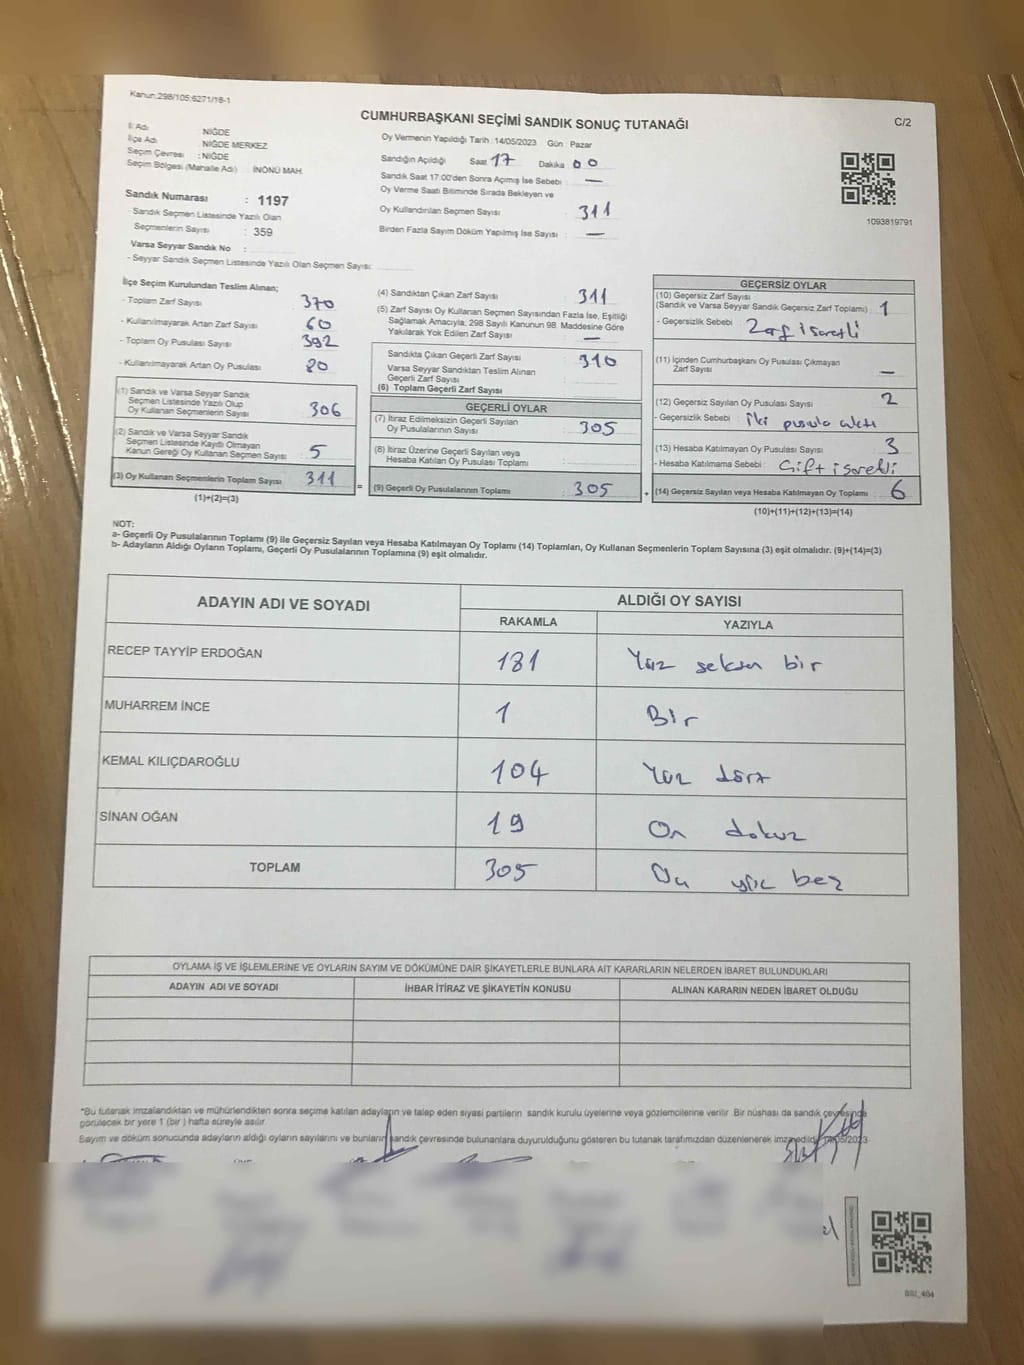 Kanun:298/105;6271/18-1
CUMHURBAŞKANI SEÇİMİ SANDIK SONUÇ TUTANAĞI
C/2
İl Adı : NİĞDE
İlçe Adı : NİĞDE MERKEZ
Seçim Çevresi : NİĞDE
Seçim Bölgesi (Mahalle Adı) : İNÖNÜ MAH.
Sandık Numarası : 1197
- Sandık Seçmen Listesinde Yazılı Olan
Seçmenlerin Sayısı : 359
Varsa Seyyar Sandık No :
- Seyyar Sandık Seçmen Listesinde Yazılı Olan Seçmen Sayısı:
Oy Vermenin Yapıldığı Tarih : 14/05/2023 Gün : Pazar
Sandığın Açıldığı Saat 17 Dakika 00
Sandık Saat 17:00'den Sonra Açımış İse Sebebi : —
Oy Verme Saati Bitiminde Sırada Bekleyen ve
Oy Kullandırılan Seçmen Sayısı : 311
Birden Fazla Sayım Döküm Yapılmış İse Sayısı : —
1093819791
İlçe Seçim Kurulundan Teslim Alınan;
- Toplam Zarf Sayısı 370
- Kullanılmayarak Artan Zarf Sayısı 60
- Toplam Oy Pusulası Sayısı 392
- Kullanılmayarak Artan Oy Pusulası 80
(1) Sandık ve Varsa Seyyar Sandık
Seçmen Listesinde Yazılı Olup
Oy Kullanan Seçmenlerin Sayısı 306
(2) Sandık ve Varsa Seyyar Sandık
Seçmen Listesinde Kayıtlı Olmayan
Kanun Gereği Oy Kullanan Seçmen Sayısı : 5
(3) Oy Kullanan Seçmenlerin Toplam Sayısı 311
(1)+(2)=(3)
=
(4) Sandıktan Çıkan Zarf Sayısı : 311
(5) Zarf Sayısı Oy Kullanan Seçmen Sayısından Fazla İse, Eşitliği
Sağlamak Amacıyla, 298 Sayılı Kanunun 98. Maddesine Göre
Yakılarak Yok Edilen Zarf Sayısı : —
Sandıkta Çıkan Geçerli Zarf Sayısı : 310
Varsa Seyyar Sandıktan Teslim Alınan
Geçerli Zarf Sayısı :
(6) Toplam Geçerli Zarf Sayısı
GEÇERLİ OYLAR
(7) İtiraz Edilmeksizin Geçerli Sayılan
Oy Pusulalarının Sayısı : 305
(8) İtiraz Üzerine Geçerli Sayılan veya
Hesaba Katılan Oy Pusulası Toplamı :
(9) Geçerli Oy Pusulalarının Toplamı : 305
+
GEÇERSİZ OYLAR
(10) Geçersiz Zarf Sayısı
(Sandık ve Varsa Seyyar Sandık Geçersiz Zarf Toplamı) : 1
- Geçersizlik Sebebi : Zarf işaretli
(11) İçinden Cumhurbaşkanı Oy Pusulası Çıkmayan
Zarf Sayısı : —
(12) Geçersiz Sayılan Oy Pusulası Sayısı : 2
- Geçersizlik Sebebi : iki pusula çıktı
(13) Hesaba Katılmayan Oy Pusulası Sayısı : 3
- Hesaba Katılmama Sebebi : Çift işaretli
(14) Geçersiz Sayılan veya Hesaba Katılmayan Oy Toplamı : 6
(10)+(11)+(12)+(13)=(14)
NOT:
a- Geçerli Oy Pusulalarının Toplamı (9) ile Geçersiz Sayılan veya Hesaba Katılmayan Oy Toplamı (14) Toplamları, Oy Kullanan Seçmenlerin Toplam Sayısına (3) eşit olmalıdır. (9)+(14)=(3)
b- Adayların Aldığı Oyların Toplamı, Geçerli Oy Pusulalarının Toplamına (9) eşit olmalıdır.
ADAYIN ADI VE SOYADI ALDIĞI OY SAYISI
RAKAMLA YAZIYLA
RECEP TAYYİP ERDOĞAN 181 Yüz seksen bir
MUHARREM İNCE 1 Bir
KEMAL KILIÇDAROĞLU 104 Yüz dört
SİNAN OĞAN 19 On dokuz
TOPLAM 305 yüz beş
OYLAMA İŞ VE İŞLEMLERİNE VE OYLARIN SAYIM VE DÖKÜMÜNE DAİR ŞİKAYETLERLE BUNLARA AİT KARARLARIN NELERDEN İBARET BULUNDUKLARI
ADAYIN ADI VE SOYADI İHBAR İTİRAZ VE ŞİKAYETİN KONUSU ALINAN KARARIN NEDEN İBARET OLDUĞU
"Bu tutanak imzalandıktan ve mühürlendikten sonra seçime katılan adayların ve talep eden siyasi partilerin sandık kurulu üyelerine veya gözlemcilerine verilir. Bir nüshası da sandık çevresinde
görülecek bir yere 1 (bir) hafta süreyle asılır.
Sayım ve döküm sonucunda adayların aldığı oyların sayılarını ve bunların sandık çevresinde bulunanlara duyurulduğunu gösteren bu tutanak tarafımızdan düzenlenerek imza edildi. 14/05/2023